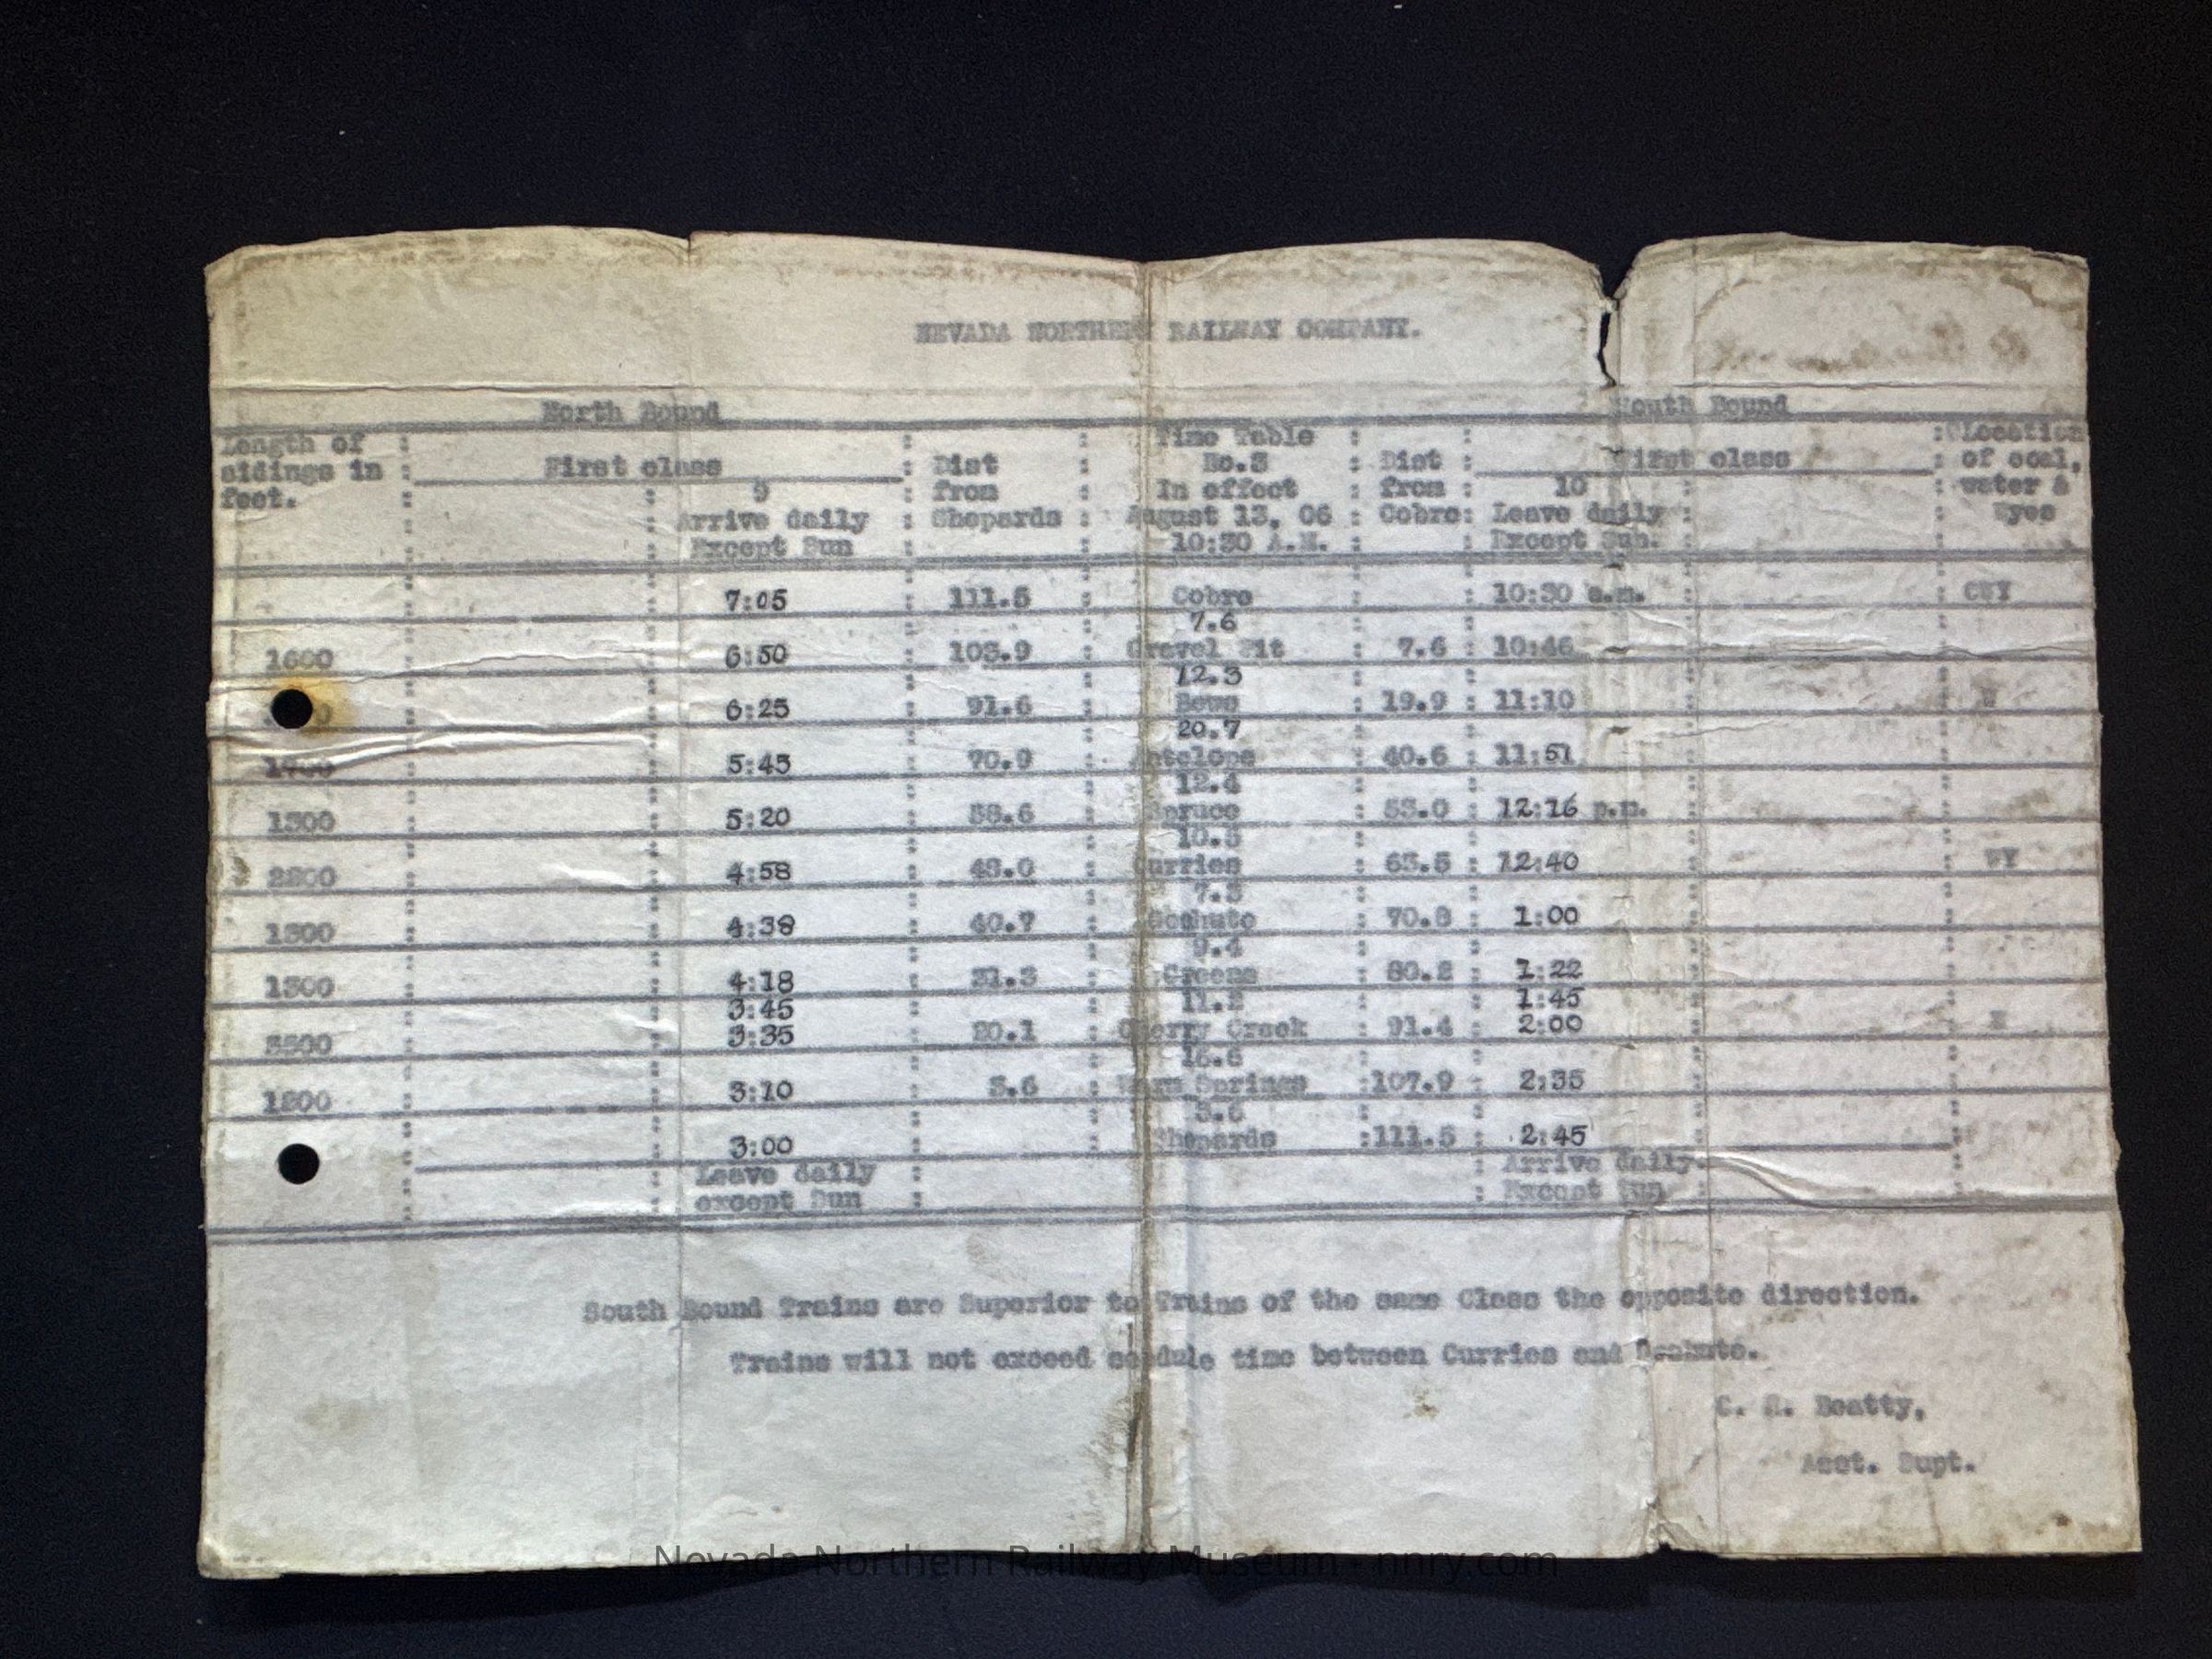 NEVADA NORTHERN RAILWAY COMPANY.
North Bound South Bound
Length of : : : Time Table : : : Location
sidings in : First class : Dist : No.3 : Dist : First class : of coal,
feet. : : 9 : from : In effect : from : 10 : : water &
: : Arrive daily : Shepards : August 13, 06 : Cobre: Leave daily : : Wyes
: : Except Sun : : 10:30 A.M. : : Except Sun. :
7:05 : 111.5 : Cobre : : 10:30 a.m. : :
7.6
1600 6:50 : 103.9 : Gravel Pit : 7.6 : 10:46
12.3
6:25 : 91.6 : : 19.9 : 11:10 : W
20.7
5:45 : 70.9 : Antelope : 40.6 : 11:51
12.4
1300 5:20 : 58.6 : Spruce : 53.0 : 12:16 p.m.
10.5
4:58 : 48.0 : Curries : 63.5 : 12:40 : WY
7.3
4:38 : 40.7 : Goshute : 70.8 : 1:00
9.4
1300 4:18 : 31.3 : Greens : 80.2 : 1:22
3:45 11.2 1:45
3:35 : 20.1 : Cherry Creek : 91.4 : 2:00
16.6
3:10 : 3.6 : Warm Springs :107.9 : 2:35
3.6
3:00 : Shepards :111.5 : 2:45
Leave daily : : Arrive daily.
except Sun : : Except Sun :
South Bound Trains are Superior to Trains of the same Class the opposite direction.
Trains will not exceed scedule time between Curries and Goshute.
Beatty,
Asst. Supt.
Nevada Northern Railway Museum - nnry.com